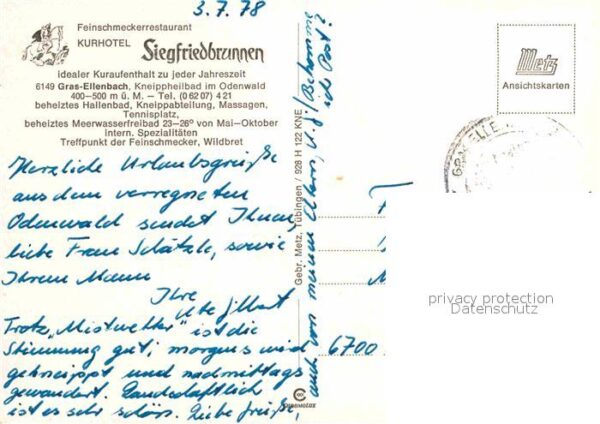 3.7.78
Feinschmeckerrestaurant
KURHOTEL Siegfriedbrunnen
idealer Kuraufenthalt zu jeder Jahreszeit
6149 Gras-Ellenbach, Kneippheilbad im Odenwald
400-500 m ü. M. – Tel. (0 62 07) 4 21
beheiztes Hallenbad, Kneippabteilung, Massagen,
Tennisplatz,
beheiztes Meerwasserfreibad 23-26° von Mai-Oktober
intern. Spezialitäten
Treffpunkt der Feinschmecker, Wildbret
Herzliche Urlaubsgrüße
aus dem verregneten
Odenwald sendet Ihnen,
liebe Frau Schätzle, sowie
Ihrem Mann
Ihre
Ute
Trotz "Mistwetter" ist die
Stimmung gut; morgens wird
gekneippt und nachmittags
gewandert. Landschaftlich
ist es sehr schön. Liebe Grüße,
auch von meinen Eltern, u. g./Bekomme
ich Post?
Gebr. Metz, Tübingen / 928 H 122 KNE
Metz
Ansichtskarten
6700
privacy protection
Datenschutz